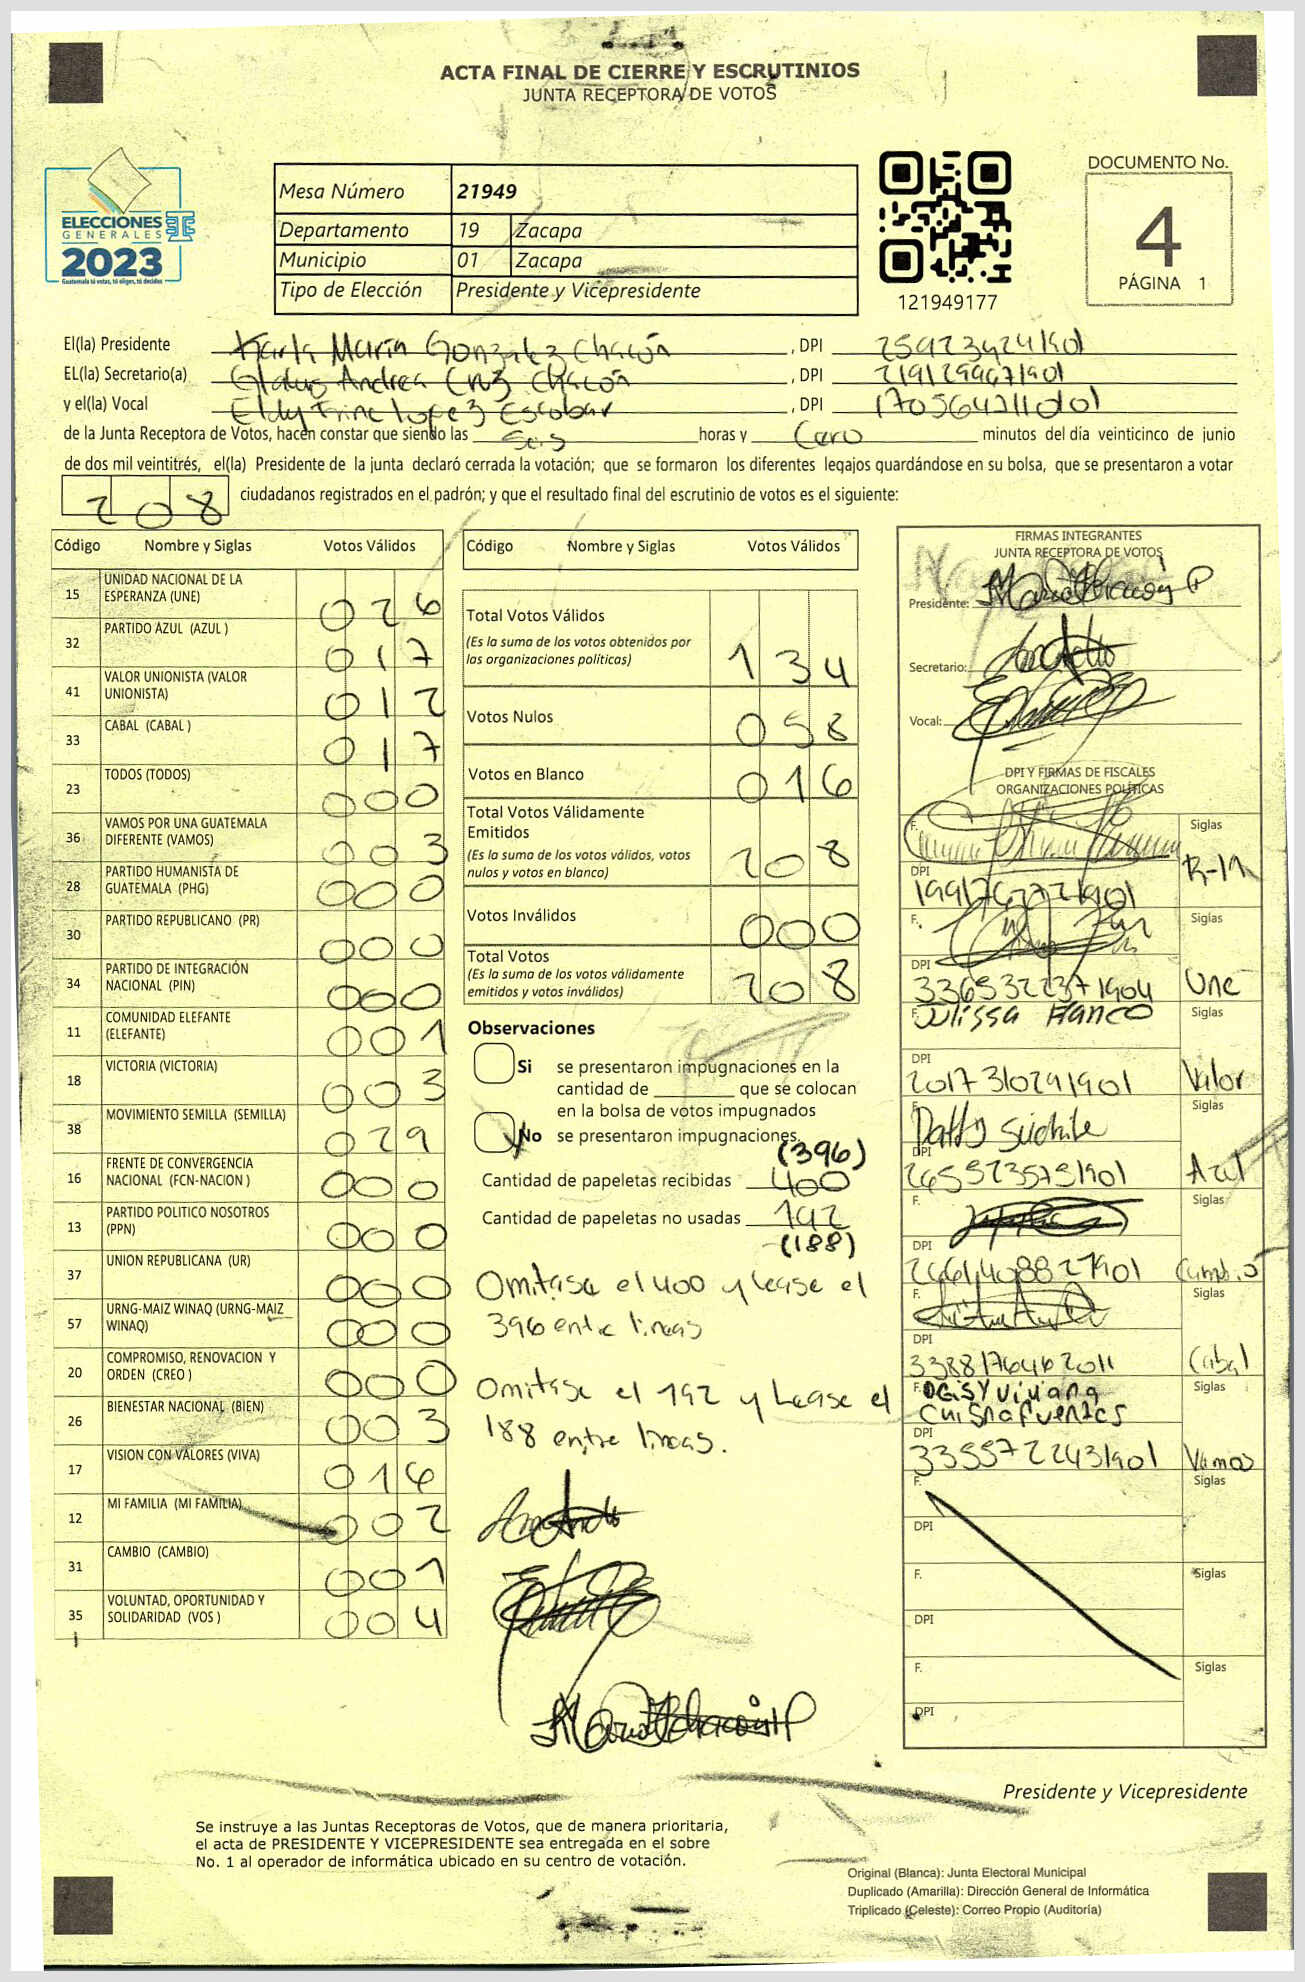 ACTA FINAL DE CIERRE Y ESCRUTINIOS
JUNTA RECEPTORA DE VOTOS
ELECCIONES
GENERALES
2023
Guatemala tú votas, tú eliges, tú decides
Mesa Número 21949
Departamento 19 Zacapa
Municipio 01 Zacapa
Tipo de Elección Presidente y Vicepresidente
121949177
DOCUMENTO No.
4
PÁGINA 1
El(la) Presidente Karla María Gonzalez Chacón , DPI
EL(la) Secretario(a) Gladys Andrea Cruz Chacón , DPI
y el(la) Vocal Lopez Escobar , DPI
de la Junta Receptora de Votos, hacen constar que siendo las Seis horas y Cero minutos del día veinticinco de junio
de dos mil veintitrés, el(la) Presidente de la junta declaró cerrada la votación; que se formaron los diferentes legajos guardándose en su bolsa, que se presentaron a votar
208 ciudadanos registrados en el padrón; y que el resultado final del escrutinio de votos es el siguiente:
Código Nombre y Siglas Votos Válidos
15 UNIDAD NACIONAL DE LA ESPERANZA (UNE) 026
32 PARTIDO AZUL (AZUL ) 017
41 VALOR UNIONISTA (VALOR UNIONISTA) 012
33 CABAL (CABAL ) 017
23 TODOS (TODOS) 000
36 VAMOS POR UNA GUATEMALA DIFERENTE (VAMOS) 003
28 PARTIDO HUMANISTA DE GUATEMALA (PHG) 000
30 PARTIDO REPUBLICANO (PR) 000
34 PARTIDO DE INTEGRACIÓN NACIONAL (PIN) 000
11 COMUNIDAD ELEFANTE (ELEFANTE) 001
18 VICTORIA (VICTORIA) 003
38 MOVIMIENTO SEMILLA (SEMILLA) 029
16 FRENTE DE CONVERGENCIA NACIONAL (FCN-NACION ) 000
13 PARTIDO POLITICO NOSOTROS (PPN) 000
37 UNION REPUBLICANA (UR) 000
57 URNG-MAIZ WINAQ (URNG-MAIZ WINAQ) 000
20 COMPROMISO, RENOVACION Y ORDEN (CREO ) 000
26 BIENESTAR NACIONAL (BIEN) 003
17 VISION CON VALORES (VIVA) 016
12 MI FAMILIA (MI FAMILIA) 002
31 CAMBIO (CAMBIO) 001
35 VOLUNTAD, OPORTUNIDAD Y SOLIDARIDAD (VOS ) 004
Código Nombre y Siglas Votos Válidos
Total Votos Válidos 134
(Es la suma de los votos obtenidos por
las organizaciones políticas)
Votos Nulos 058
Votos en Blanco 016
Total Votos Válidamente
Emitidos 208
(Es la suma de los votos válidos, votos
nulos y votos en blanco)
Votos Inválidos 000
Total Votos 208
(Es la suma de los votos válidamente
emitidos y votos inválidos)
Observaciones
Si se presentaron impugnaciones en la
cantidad de ________ que se colocan
en la bolsa de votos impugnados
No se presentaron impugnaciones.
(396)
Cantidad de papeletas recibidas 400
Cantidad de papeletas no usadas 192
(188)
Omitase el 400 y Lease el
396 entre lineas
Omitase el 192 y Lease el
188 entre lineas.
FIRMAS INTEGRANTES
JUNTA RECEPTORA DE VOTOS
Presidente:
Secretario:
Vocal:
DPI Y FIRMAS DE FISCALES
ORGANIZACIONES POLÍTICAS
F. Siglas
DPI
F. Siglas
DPI Une
F. Julissa Franco Siglas
DPI
2017310291901 Valor
F. Siglas
DPI
2659235751901 Azul
F. Siglas
DPI
2661408827901 Cambio
F. Siglas
DPI
3388176462011 Cabal
F. Deisy Viviana Siglas
DPI
3355722431901 Vamos
F. Siglas
DPI
F. Siglas
DPI
F. Siglas
DPI
Presidente y Vicepresidente
Se instruye a las Juntas Receptoras de Votos, que de manera prioritaria,
el acta de PRESIDENTE Y VICEPRESIDENTE sea entregada en el sobre
No. 1 al operador de informática ubicado en su centro de votación.
Original (Blanca): Junta Electoral Municipal
Duplicado (Amarilla): Dirección General de Informática
Triplicado (Celeste): Correo Propio (Auditoría)